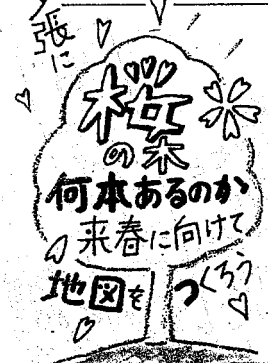 張に
桜
の木
何本あるのか
来春に向けて
地図を
つくろう